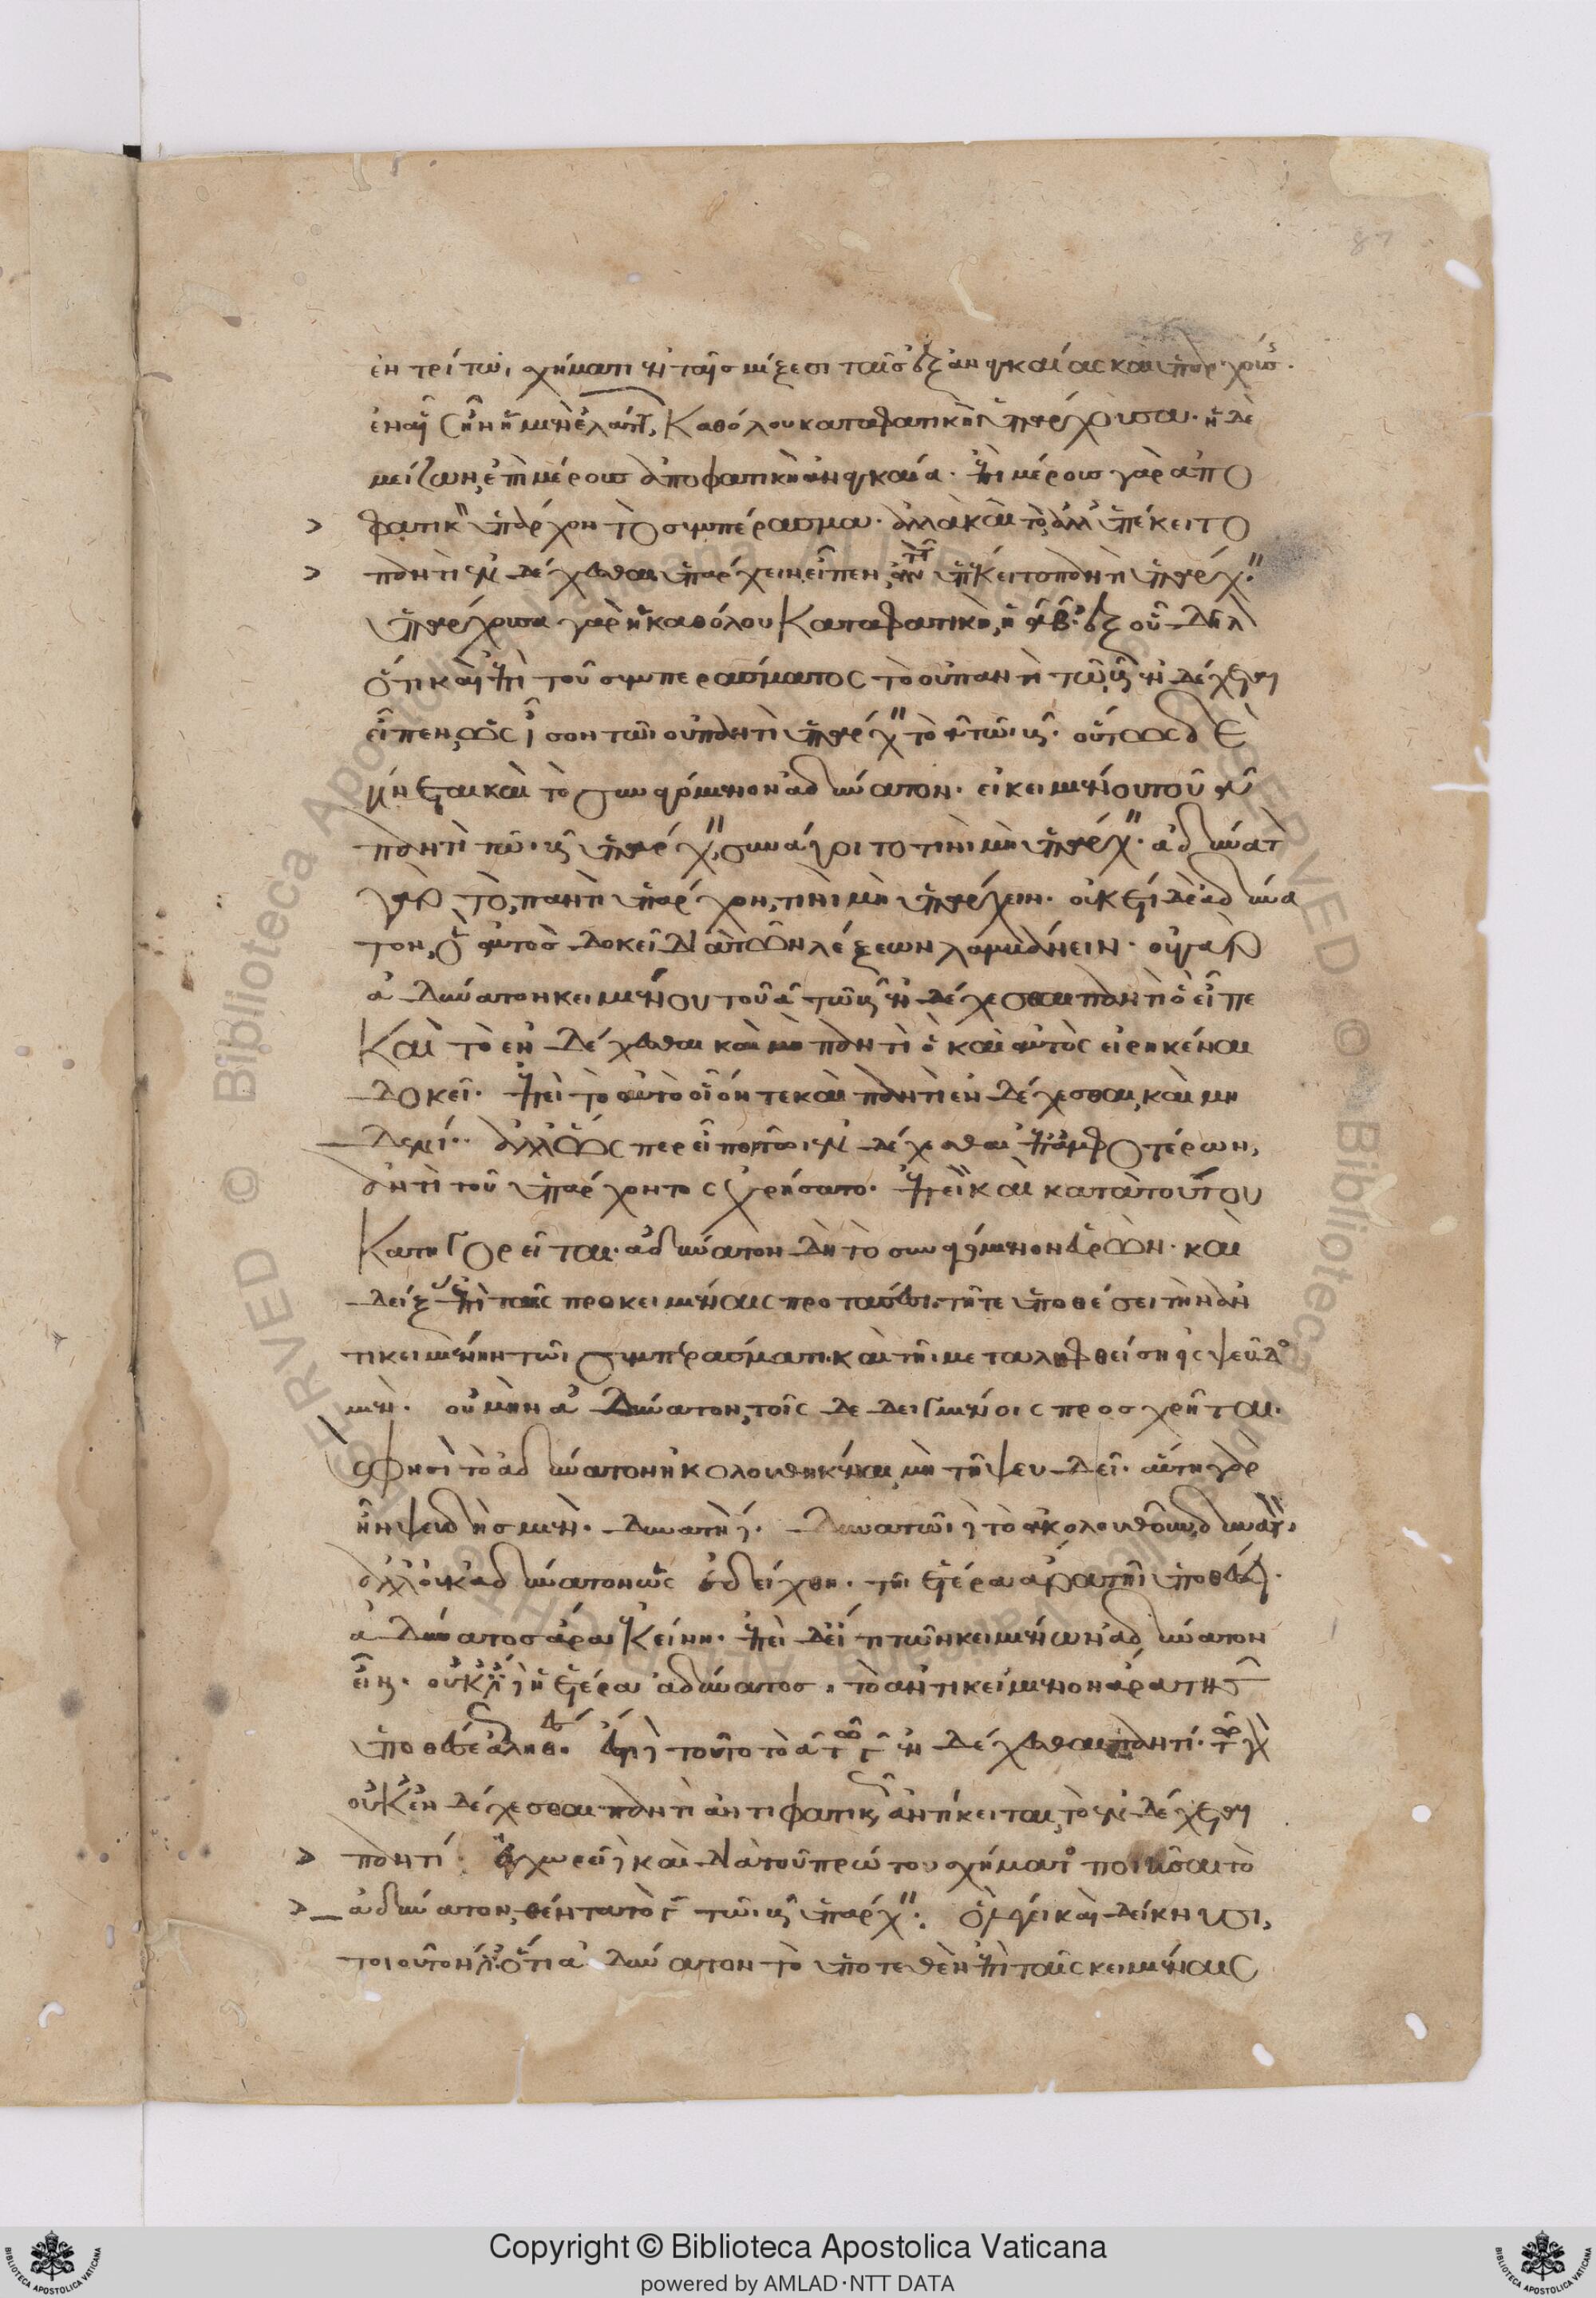 ἐν τρίτωι σχήματι ἐν ταῖς μίξεσι ταῖς ἐξ ἀναγκαίας καὶ ὑπαρχούσης.
ἐν αἷς ἦν ἡ μὲν ἐλάττων καθόλου καταφατικὴ ὑπάρχουσα. ἡ δὲ
μείζων, ἐπὶ μέρους ἀποφατικὴ ἀναγκαία. ἐπὶ μέρους γὰρ ἀπο
φατικὸν ὑπάρχον τὸ συμπέρασμα. ἀλλὰ καὶ τὸ, ἀλλ' ὑπέκειτο
παντὶ ἐνδέχεσθαι ὑπάρχειν εἶπεν, ἀντὶ τοῦ ὑπέκειτο παντὶ ὑπάρχειν.
ὑπάρχουσα γὰρ ἡ καθόλου καταφατικὴ, ἡ ΑΒ. ἐξ οὗ δῆλον
ὅτι καὶ ἐπὶ τοῦ συμπεράσματος τὸ οὐ παντὶ τῶι Γ ἐνδέχεται
εἶπεν, ὡς ἴσον τῶι οὐ παντὶ ὑπάρχειν τὸ Α τῶι Γ. οὕτως δὲ
γίνεται καὶ τὸ συναγόμενον ἀδύνατον. εἰ κειμένου τοῦ Α
παντὶ τῶι Γ ὑπάρχειν, συνάγοιτο τινὶ μὴ ὑπάρχειν. ἀδύνατον
γὰρ τὸ, παντὶ ὑπάρχον, τινὶ μὴ ὑπάρχειν. οὐκέτι δὲ ἀδύνα
τον, ὃ αὐτὸς δοκεῖ διὰ τῶν λέξεων λαμβάνειν. οὐ γὰρ
ἀδύνατον κειμένου τοῦ Α τῶι Γ ἐνδέχεσθαι παντὶ ὃ εἶπε
καὶ τὸ ἐνδέχεσθαι καὶ μὴ παντὶ ὃ καὶ αὐτὸς εἰρηκέναι
δοκεῖ. ἐπεὶ τὸ αὐτὸ οἷόν τε καὶ παντὶ ἐνδέχεσθαι, καὶ μη
δενί. ἀλλ' ὥσπερ εἶπον τῶι ἐνδέχεσθαι ἐπ' ἀμφοτέρων,
ἀντὶ τοῦ ὑπάρχοντος ἐχρήσατο. ἐπεὶ καὶ κατὰ τούτου
κατηγορεῖται. ἀδύνατον δὴ τὸ συναγόμενον εὑρὼν. καὶ
δείξας ἐπὶ ταῖς προκειμέναις προτάσεσι. τῆι τε ὑποθέσει τὴν ἀν
τικειμένην τῶι συμπεράσματι. καὶ τῆι μεταληφθείσηι εἰς ψεῦδος
μὲν. οὐ μὴν ἀδύνατον, τοῖς δεδειγμένοις προσχρῆται.
ὥς φησὶ τὸ ἀδύνατον ἠκολουθηκέναι, μὴ τῆι ψευδεῖ. αὕτη γὰρ
ἦν ψευδὴς μὲν. δυνατὴ δέ. δυνατῶι δὲ τὸ ἀκολουθοῦν, δυνατόν,
ἀλλ' οὐκ ἀδύνατον ὡς ἐδείχθη. τῆι ἑτέραι ἄρα τῆι ὑποθέσει.
ἀδύνατος ἄρα ἐκείνη. ἐπεὶ δεῖ τι τῶν κειμένων ἀδύνατον
εἶναι. οὐκ ἔστι δὲ ἡ ἑτέρα ἀδύνατος. τὸ ἀντικείμενον ἄρα τῆς
ὑποθέσεως ἀληθές. ἔστι δὲ τοῦτο τὸ Α τῶι Γ ἐνδέχεσθαι παντί. τῶι γὰρ
οὐκ ἐνδέχεσθαι παντὶ ἀντιφατικῶς ἀντίκειται, τὸ ἐνδέχεται
παντί. ἐγχωρεῖ δὲ καὶ διὰ τοῦ πρώτου σχήματος ποιῆσαι τὸ
ἀδύνατον, θέντα τὸ Β τῶι Γ ὑπάρχειν. ὃ λέγει καὶ δείκνυσι,
τοιοῦτόν ἐστι. ὅτι ἀδύνατον τὸ ὑποτεθὲν ἐπὶ ταῖς κειμέναις
Copyright © Biblioteca Apostolica Vaticana
powered by AMLAD·NTT DATA